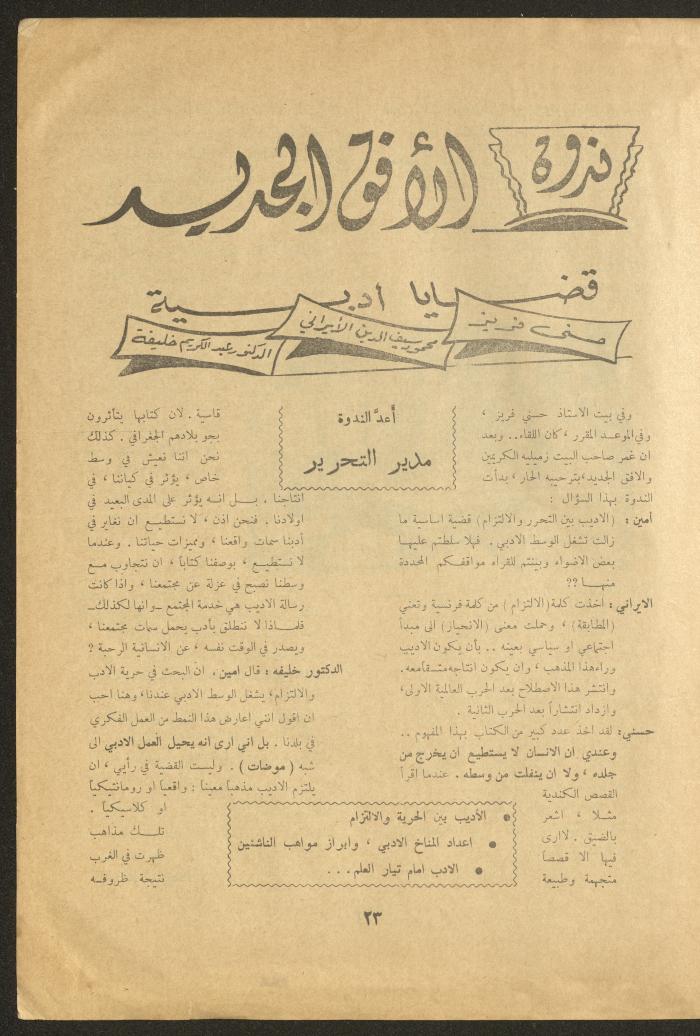 ندوة
الأفق الجديد
قضايا أدبية
حسني فريز
محمود سيف الدين الأيراني
الدكتور عبد الكريم خليفة
أعدَّ الندوة
مدير التحرير
وفي بيت الاستاذ حسني فريز ،
وفي الموعد المقرر ، كان اللقاء.. وبعد
ان غمر صاحب البيت زميليه الكريمين
والافق الجديد ، بترحيبه الحار ، بدأت
الندوة بهذا السؤال :
أمين : (الاديب بين التحرر والالتزام) قضية اساسية ما
زالت تشغل الوسط الادبي . فهلا سلطتم عليها
بعض الاضواء وبينتم للقراء مواقفكم المحددة
منها ؟؟
الايراني : أخذت كلمة (الالتزام ) من كلمة فرنسية وتعني
(المطابقة) ، وحملت معنى (الانحياز) الى مبدأ
اجتماعي او سياسي بعينه .. بأن يكون الاديب
وراء هذا المذهب ، وان يكون انتاجه متسقا معه.
وانتشر هذا الاصطلاح بعد الحرب العالمية الاولى،
وازداد انتشاراً بعد الحرب الثانية .
حسني: لقد اخذ عدد كبير من الكتاب بهذا المفهوم ..
وعندي ان الانسان لا يستطيع ان يخرج من
جلده ، ولا ان ينفلت من وسطه . عندما اقرأ
القصص الكندية
مثلا ، اشعر
بالضيق . لا ارى
فيها الا قصصاً
متجهمة وطبيعة
قاسية . لان كتابها يتأثرون
بجو بلادهم الجغرافي . كذلك
نحن اننا نعيش في وسط
خاص ، يؤثر في كياننا ، في
انتاجنا . بل انه يؤثر على المدى البعيد في
اولادنا . فنحن اذن ، لا نستطيع ان نغاير في
أدبنا سمات واقعنا ، ومميزات حياتنا . وعندما
لا نستطيع ، بوصفنا كتاباً ، ان نتجاوب مع
وسطنا نصبح في عزلة عن مجتمعنا ، واذا كانت
رسالة الاديب هي خدمة المجتمع ــ وانها لكذلك ــ
فلماذا لا ننطلق بأدب يحمل سمات مجتمعنا ،
ويصدر في الوقت نفسه ، عن الانسانية الرحبة ؟
الدكتور خليفه : قال امين . ان البحث في حرية الادب
والالتزام، يشغل الوسط الادبي عندنا، وهنا احب
ان اقول انني اعارض هذا النمط من العمل الفكري
في بلدنا . بل اني ارى انه يحيل العمل الادبي الى
شبه ( موضات ) . وليست القضية في رأيي ، ان
يلتزم الاديب مذهباً معيناً : واقعياً او رومانتيكياً
او كلاسيكياً .
تلك مذاهب
ظهرت في الغرب
نتيجة ظروفه
● الأديب بين الحرية والالتزام
● اعداد المناخ الادبي ، وابراز مواهب الناشئين
● الادب امام تيار العلم . . .
٢٣